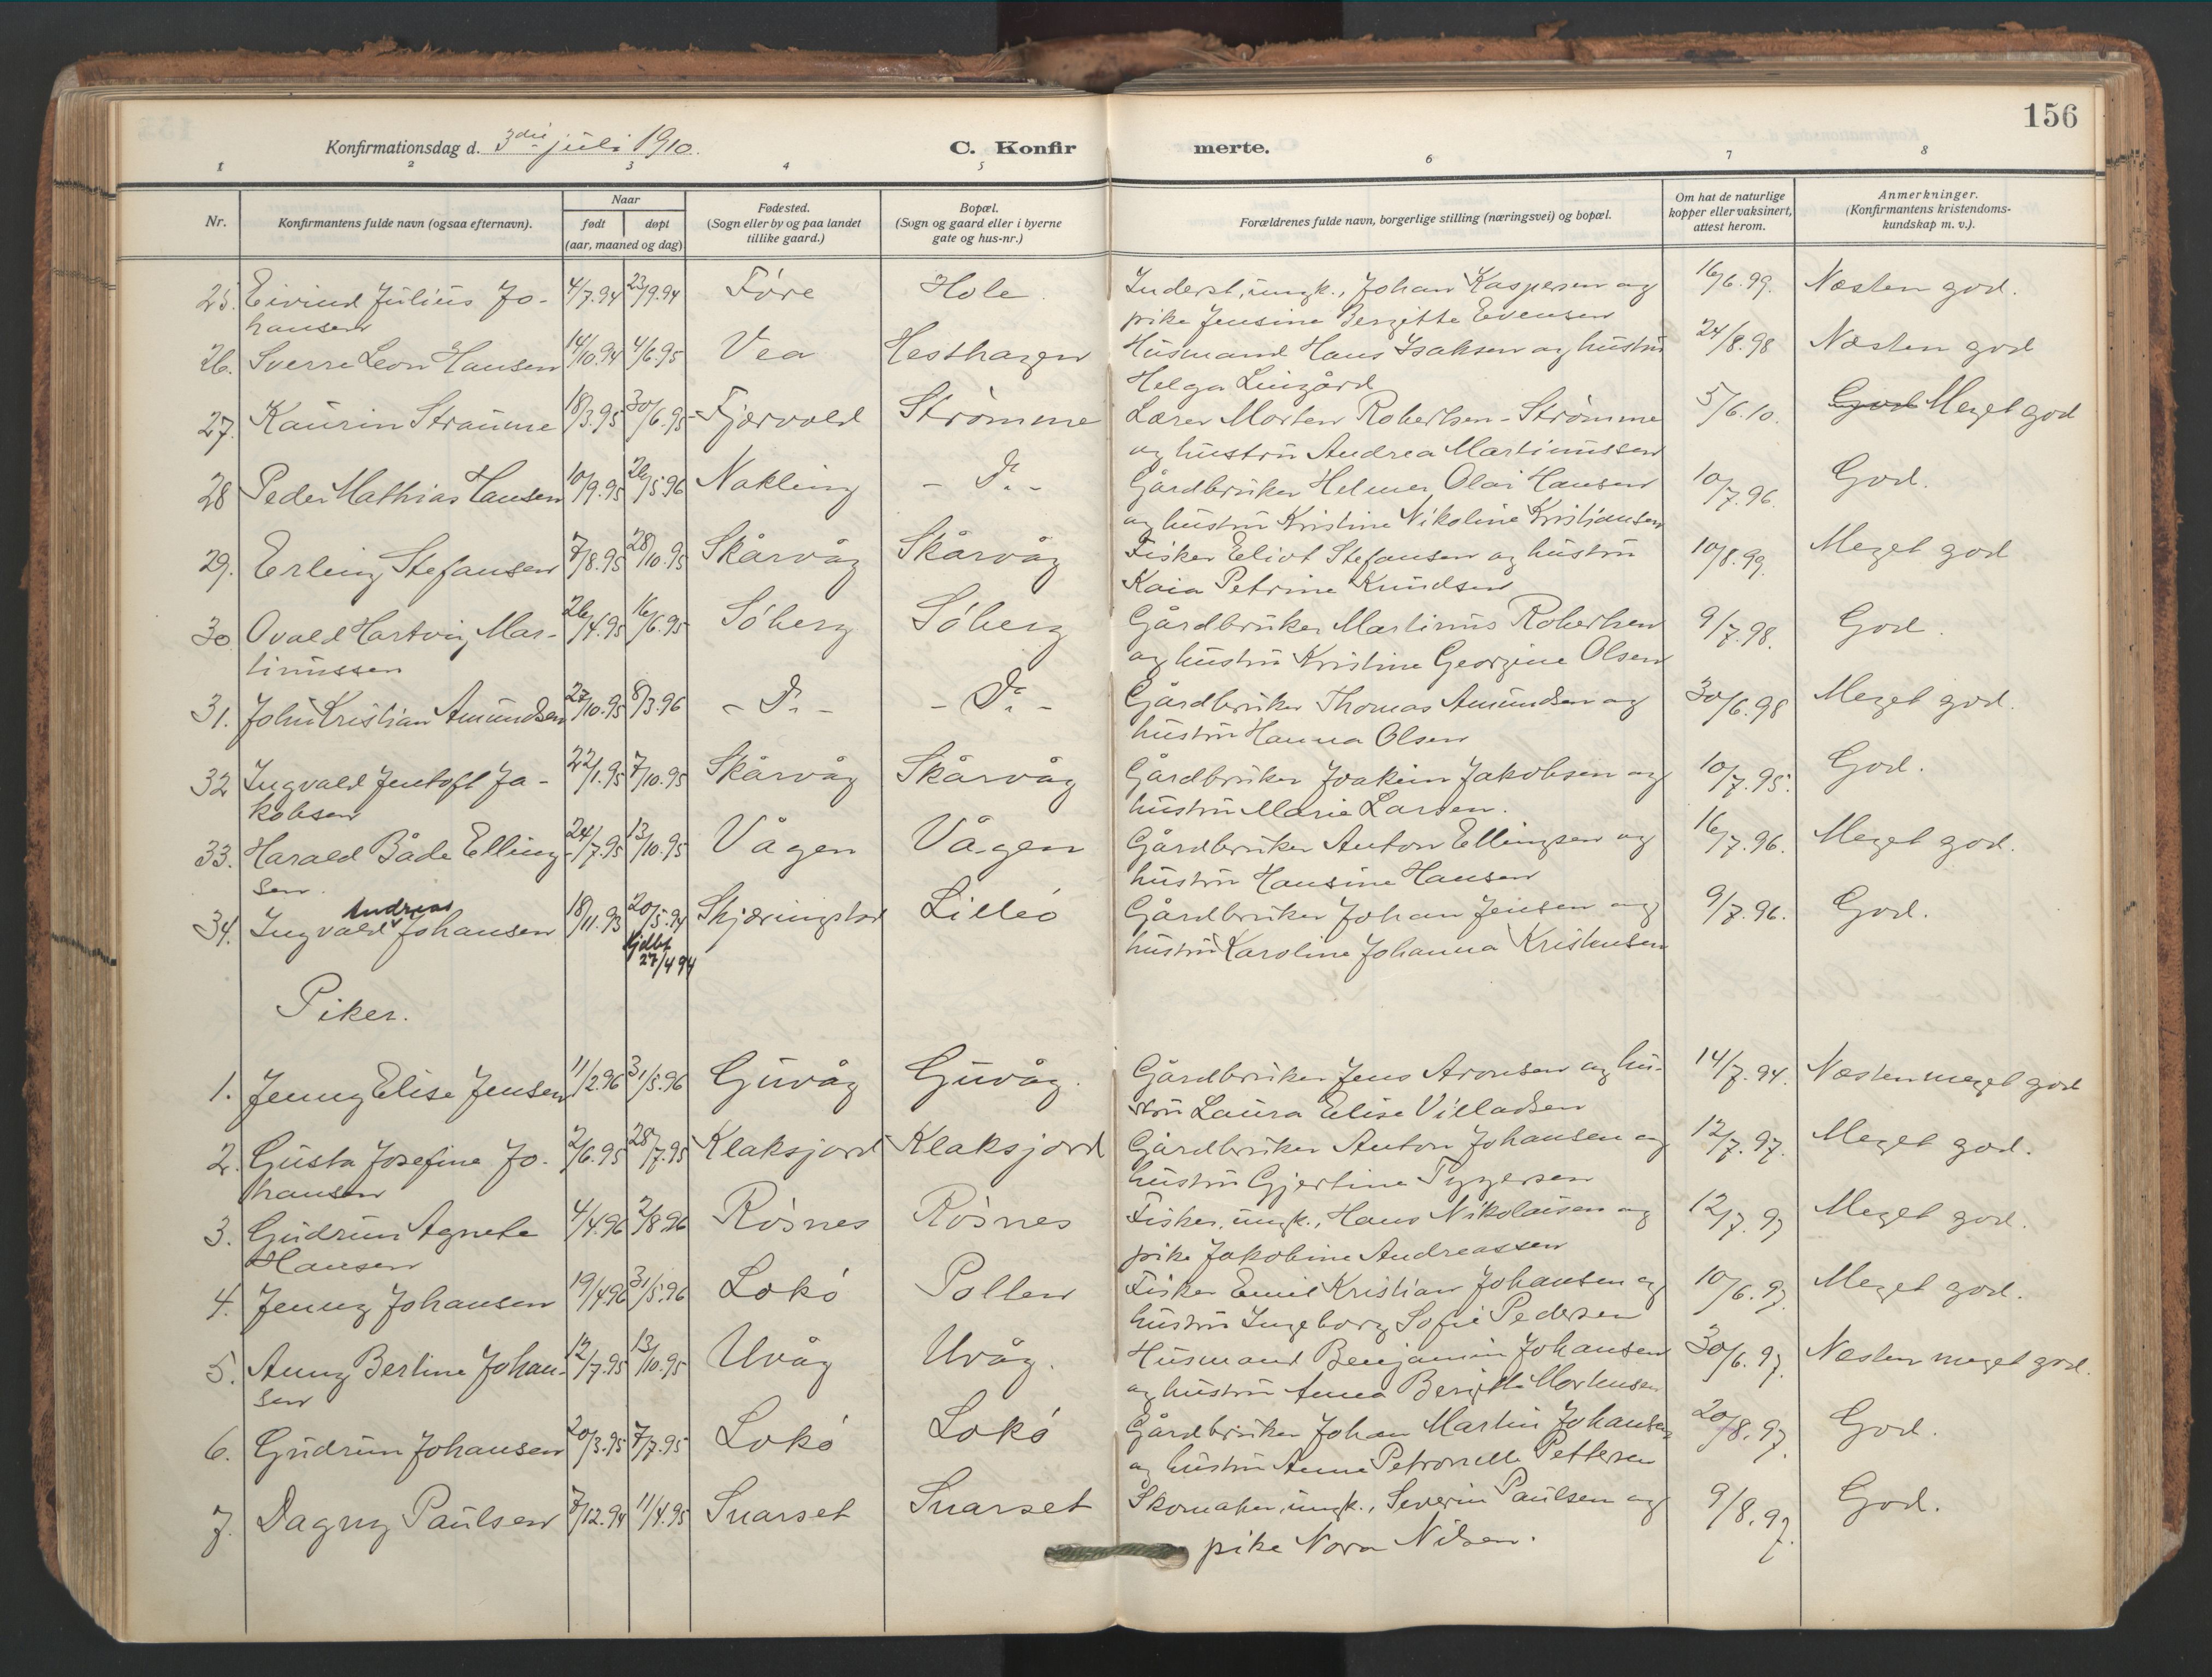 156
Konfirmationsdag d. 3die juli 1910.
C. Konfirmerte.
1 2 3 4 5 6 7 8
Nr.
Konfirmantens fulde navn (ogsaa efternavn).
Naar
født døpt
(aar, maaned og dag)
Fødested.
(Sogn eller by og paa landet
tillike gaard.)
Bopæl.
(Sogn og gaard eller i byerne
gate og hus-nr.)
Forældrenes fulde navn, borgerlige stilling (næringsvei) og bopæl.
Om hat de naturlige
kopper eller vaksinert,
attest herom.
Anmerkninger.
(Konfirmantens kristendoms-
kundskap m. v.).
25. Eivind Julius Jo- 4/7.94 23/9.94 Føre Hole Inderst, ungk., Johan Kaspersen og 16/6.99. Næsten god.
hansen pike Jensine Bergitte Evensen
26. Sverre Leon Hansen 14/10.94 4/6.95 Vea Hesthagen Husmand Hans Isaksen og hustru 24/8.98 Næsten god
Helga Lingård
27. Kaurin Straume 18/3.95 30/6.95 Fjærvold Strømme Lærer Morten Robertsen-Strømme 5/6.10. God Meget god
og hustru Andrea Martinussen
28 Peder Mathias Hansen 10/9.95 26/5.96 Nakling - Do. - Gårdbruker Helmer Olai Hansen 10/7.96. God.
og hustru Kristine Nikoline Kristiansen
29. Erling Stefansen 7/8.95 28/10.95 Skårvåg Skårvåg Fisker Eliot Stefansen og hustru 10/8.99. Meget god
Kaia Petrine Knudsen
30. Ovald Hartvig Mar- 26/4.95 16/6.95 Søberg Søberg Gårdbruker Martinus Robertsen 9/7.98. God.
tinussen og hustru Kristine Georgine Olsen
31. John Kristian Amundsen 27/10.95 8/3.96 - Do. - - Do. - Gårdbruker Thomas Amundsen og 30/6.98 Meget god.
hustru Hanna Olsen
32 Ingvald Jentoft Ja- 22/1.95 7/10.95 Skårvåg Skårvåg Gårdbruker Joakim Jakobsen og 10/7.95. God.
kobsen hustru Marie Larsen.
33. Harald Både Elling- 24/7.95 13/10.95 Vågen Vågen Gårdbruker Anton Ellingsen og 16/7.96. Meget god.
sen. hustru Hansine Hansen
Andreas
34. Ingvald Johansen 18/11.93 20/5.94 Skjæringstad Lilleø Gårdbruker Johan Jensen og 9/7.96. God.
hjdbt
27/4 94 hustru Karoline Johanna Kristensen
Piker.
1. Jenny Elise Jensen 11/2.96 31/5.96 Guvåg Guvåg. Gårdbruker Jens Aronsen og hu- 14/7.94. Næsten meget god
stru Laura Elise Villadsen
2. Gusta Josefine Jo- 2/6.95 28/7.95 Klaksjord Klaksjord Gårdbruker Anton Johansen og 12/7.97. Meget god.
hansen hustru Gjertine Tygersen
3. Gudrun Agnete 4/4.96 2/8.96 Røsnes Røsnes Fisker, ungk., Hans Nikolaisen og 12/7.97 Meget god.
Hansen pike Jakobine Andreassen
4. Jenny Johansen 19/4.96 31/5.96 Lokø Pollen Fisker Emil Kristian Johansen og 10/6.97. Meget god.
hustru Ingeborg Sofie Pedersen
5. Anny Bertine Johan- 12/7.95 13/10.95 Uvåg Uvåg. Husmand Benjamin Johansen 30/6.97. Næsten meget god.
sen og hustru Anna Bergitte Mortensen
6. Gudrun Johansen 20/3.95 7/7.95 Lokø Lokø Gårdbruker Johan Martin Johansen 20/8.97. God.
og hustru Anna Petronelle Pettersen
7. Dagny Paulsen 7/12.94 11/4.95 Snarset Snarset Skomaker, ungk., Severin Paulsen og 9/8.97. God.
pike Nora Nilsen.